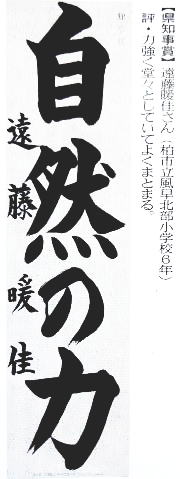 【県知事賞】遠藤暖佳さん（柏市立風早北部小学校６年）
評・力強く堂々としていてよくまとまる。
自然の力
遠藤暖佳